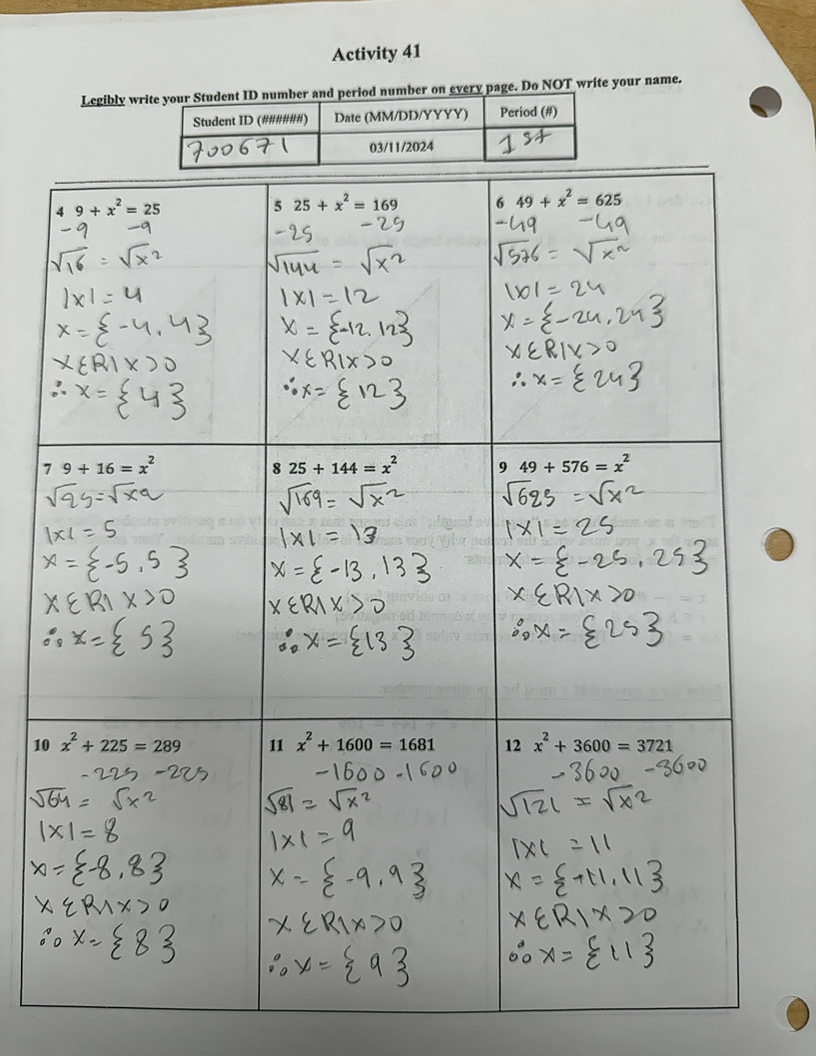 Activity 41
Legibly write your Student ID number and period number on every page. Do NOT write your name.
Student ID (######) Date (MM/DD/YYYY) Period (#)
700671 03/11/2024 1st
4 9 + x² = 25
-9 -9
√16 = √x²
|x| = 4
x = {-4, 4}
x ∈ R | x > 0
∴ x = {4}
5 25 + x² = 169
-25 -25
√144 = √x²
|x| = 12
x = {-12, 12}
x ∈ R | x > 0
∴ x = {12}
6 49 + x² = 625
-49 -49
√576 = √x²
|x| = 24
x = {-24, 24}
x ∈ R | x > 0
∴ x = {24}
7 9 + 16 = x²
√25 = √x²
|x| = 5
x = {-5, 5}
x ∈ R | x > 0
∴ x = {5}
8 25 + 144 = x²
√169 = √x²
|x| = 13
x = {-13, 13}
x ∈ R | x > 0
∴ x = {13}
9 49 + 576 = x²
√625 = √x²
|x| = 25
x = {-25, 25}
x ∈ R | x > 0
∴ x = {25}
10 x² + 225 = 289
-225 -225
√64 = √x²
|x| = 8
x = {-8, 8}
x ∈ R | x > 0
∴ x = {8}
11 x² + 1600 = 1681
-1600 -1600
√81 = √x²
|x| = 9
x = {-9, 9}
x ∈ R | x > 0
∴ x = {9}
12 x² + 3600 = 3721
-3600 -3600
√121 = √x²
|x| = 11
x = {-11, 11}
x ∈ R | x > 0
∴ x = {11}